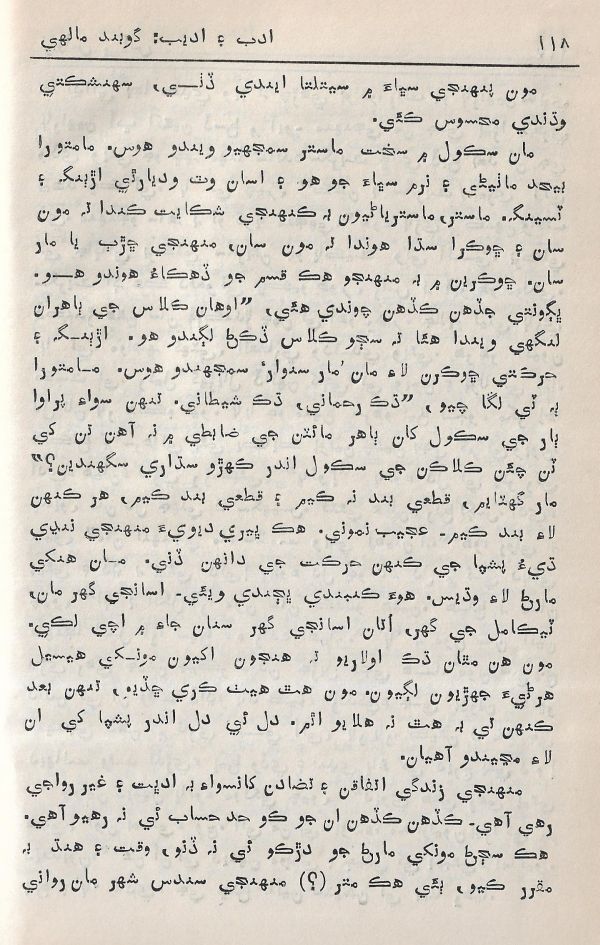 ١١٨ ادب ۽ اديب: گوبند مالهي
مون پنهنجي سڀاءَ ۾ سيتلتا ايندي ڏٺي، سهنشڪتي
وڌندي محسوس ڪئي.
مان سڪول ۾ سخت ماستر سمجهيو ويندو هوس. مامتورا
بيحد مانيٺي ۽ نرم سڀاءَ جو هو ۽ اسان وٽ وديارٿي اڙٻنگ ۽
ٽسينگ. ماستر، ماسترياڻيون بہ ڪنهنجي شڪايت ڪندا تہ مون
سان ۽ ڇوڪرا سڌا هوندا تہ مون سان، منهنجي ڇڙٻ يا مار
سان. ڇوڪرين ۾ بہ منهنجو هڪ قسم جو ڏهڪاءُ هوندو هو.
ڀڳونتي جڏهن ڪڏهن چوندي هئي، ”اوهان ڪلاس جي ٻاهران
لنگهي ويندا هئا تہ سڄو ڪلاس ڏڪڻ لڳندو هو. اڙٻنگ ۽
حرڪتي ڇوڪرن لاءِ مان ’مار سنوار‘ سمجهندو هوس. مامتورا
ٻہ ٽي لڱا چيو، ”ڌڪ رحماني، ڌڪ شيطاني. تنهن سواءِ پراوا
ٻار جي سڪول کان ٻاهر مائٽن جي ضابطي ۾ نہ آهن تن کي
ٽن چئن ڪلاڪن جي سڪول اندر ڪهڙو سڌاري سگهندين؟“
مار گهٽايم، قطعي بند نہ ڪيم ۽ قطعي بند ڪيم، هر ڪنهن
لاءِ بند ڪيم۔ عجيب نموني. هڪ ڀيري ديويءَ منهنجي ننڍي
ڌيءُ پشپا جي ڪنهن حرڪت جي دانهن ڏني. مان هنکي
مارڻ لاءِ وڌيس. هوءَ ڪنبندي ڀڄندي ويئي۔ اسانجي گهر مان،
ٽيڪامل جي گهر، اُتان اسانجي گهر سنان جاءِ ۾ اچي لڪي.
مون هن مٿان ڌڪ اولاريو تہ هنجون اکيون مونکي هيسيل
هرڻيءَ جهڙيون لڳيون. مون هٿ هيٺ ڪري ڇڏيو، تنهن بعد
ڪنهن تي بہ هٿ نہ هلايو اٿم. دل ئي دل اندر پشپا کي ان
لاءِ مڃيندو آهيان.
منهنجي زندگي اتفاقن ۽ تضادن کانسواءِ بہ اديت ۽ غير رواجي
رهي آهي۔ ڪڏهن ڪڏهن ان جو ڪو حد حساب ئي نہ رهيو آهي.
هڪ سڄڻ مونکي مارڻ جو دڙڪو ئي نہ ڏنو، وقت ۽ هنڌ بہ
مقرر ڪيو، ٻئي هڪ متر (؟) منهنجي سندس شهر مان رواني